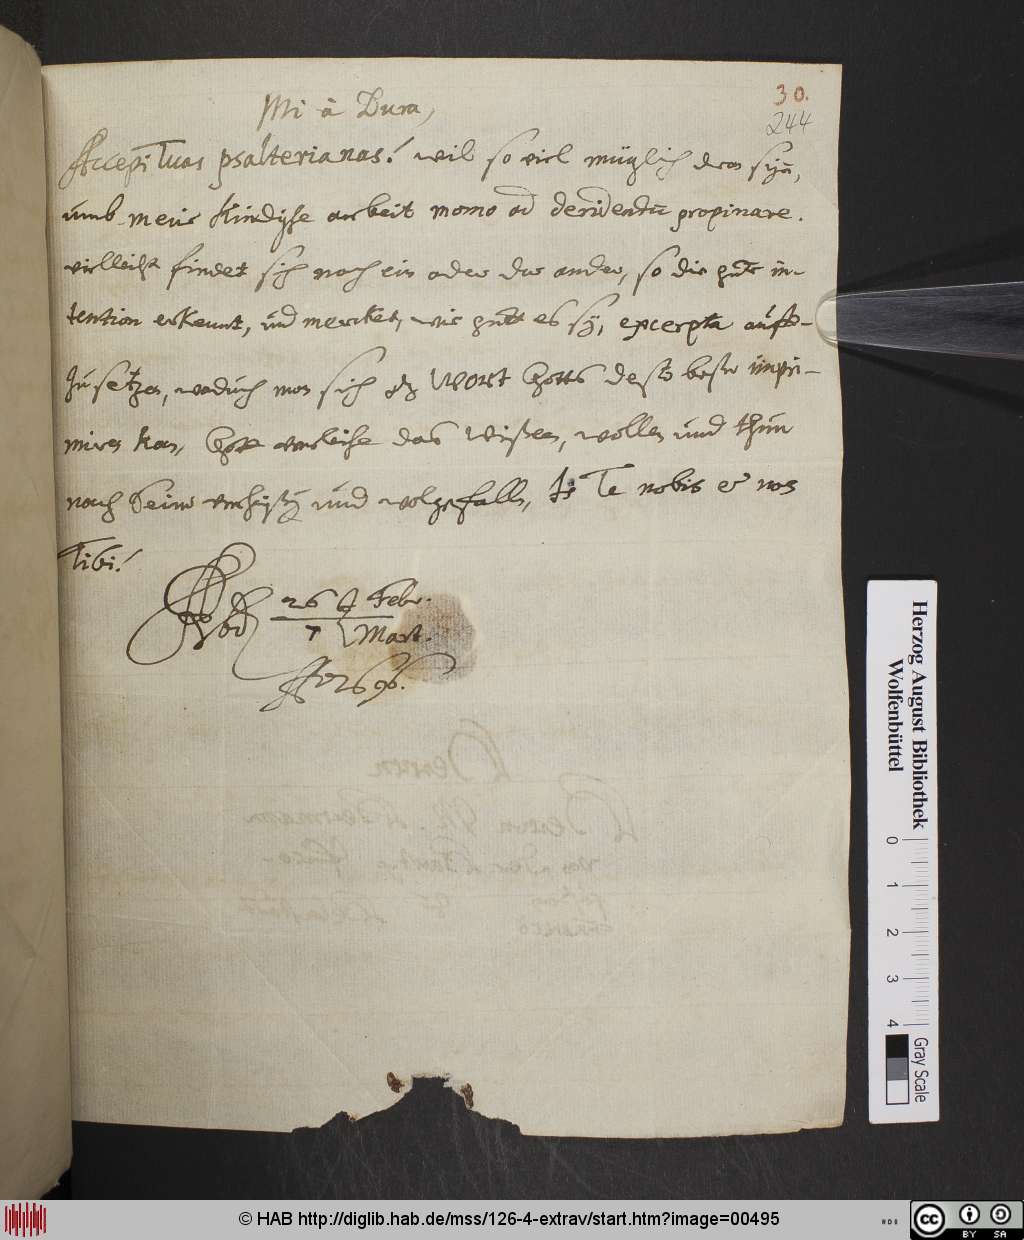 30.
244
Mi à Dura,
Accepi Tuas psalterianas! wil so viel müglich dran syn,
umb meine Kindische arbeit momo ad deridendū propinare.
vielleicht findet sich noch ein oder der ander, so die gute in-
tention erkennt, und mercket, wie gutt es sy, excerpta auff-
zusetzen, wodurch man sich dz Wort Gotts desto besser impri-
miren kan, Gott verleihe das Wißen, wollen und thun
nach seinem und wolgefallen, Is Te nobis & nos
Tibi!
26 Febr.
7 Mart.
Herzog August Bibliothek
Wolfenbüttel
0 1 2 3 4
Gray Scale
© HAB http://diglib.hab.de/mss/126-4-extrav/start.htm?image=00495
CC BY SA